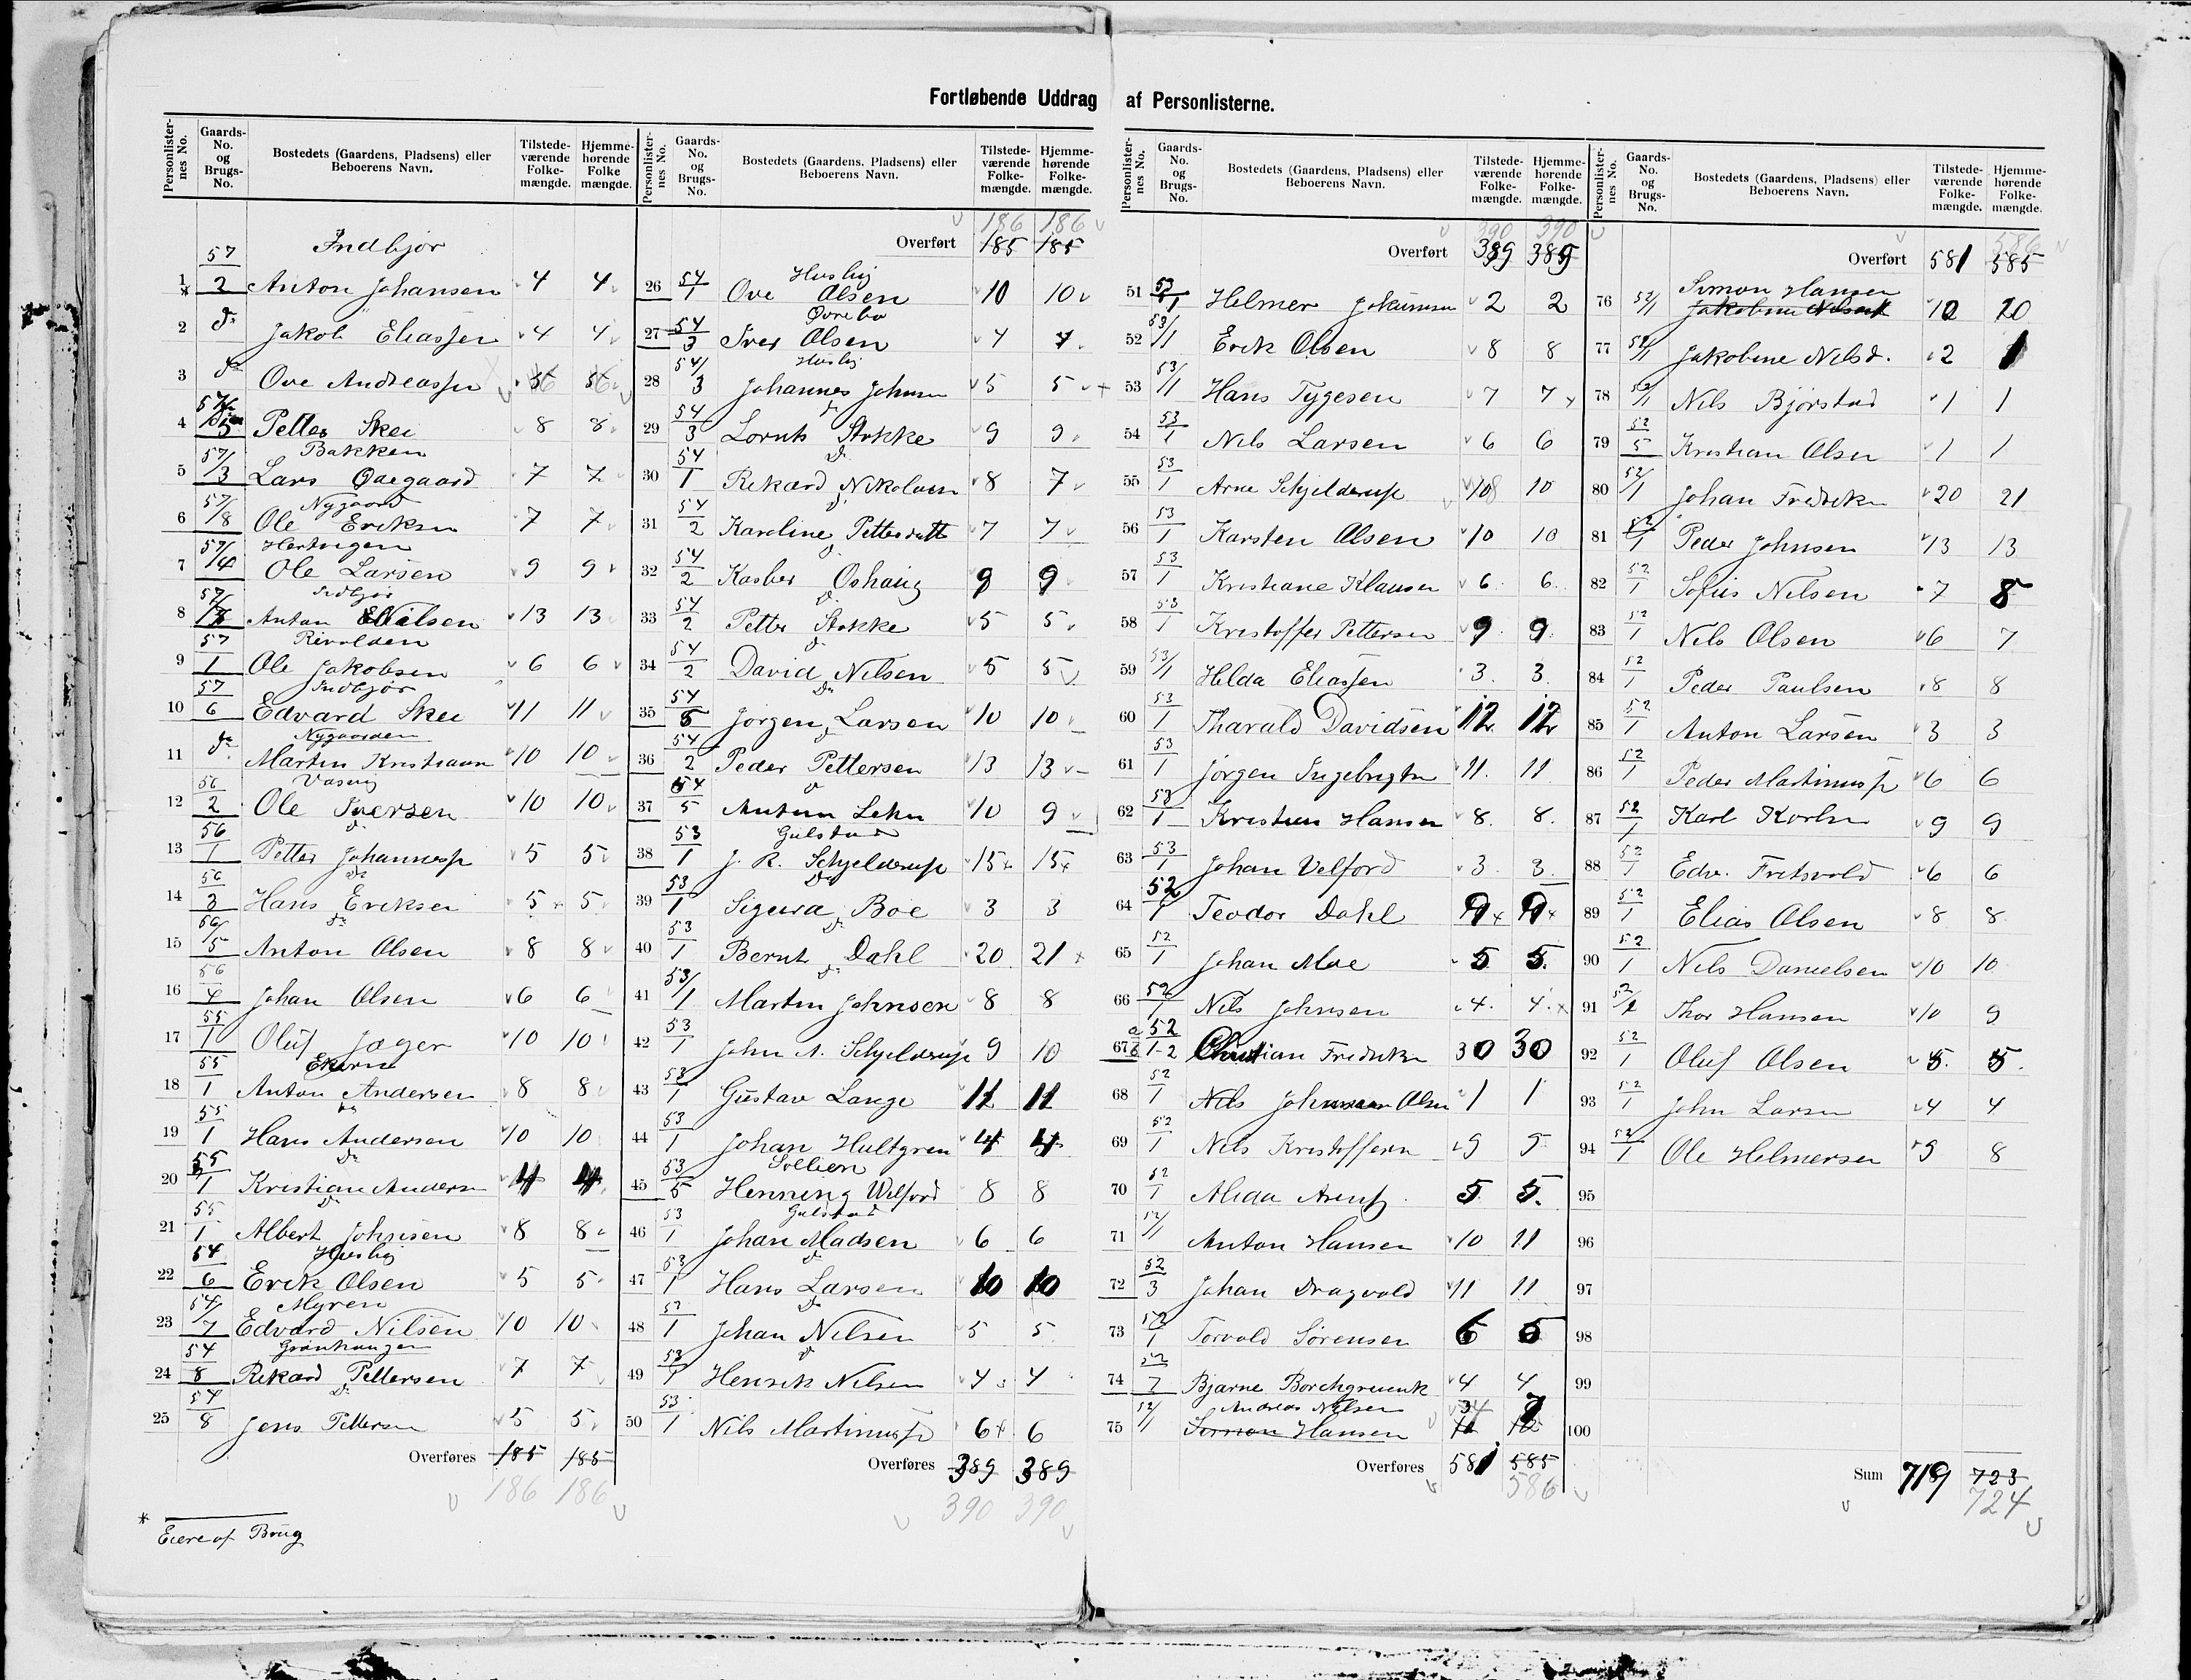 Fortløbende Uddrag af Personlisterne.
Personlister-nes No. Gaards-No. og Brugs-No. Bostedets (Gaardens, Pladsens) eller Beboerens Navn. Tilstede-værende Folke-mængde. Hjemme-hørende Folke mængde.
57 Indbjør
1 2 Anton Johansen 4 4
2 do Jakob Eliassen 4 4
3 do Ove Andreassen 56 56
4 57/5 Petter Skei 8 8
Bakken
5 57/3 Lars Ovegaard 7 7
Nygaard
6 57/8 Ole Eriksen 7 7
Hertvigen
7 57/4 Ole Larsen 9 9
Indbjør
8 57/ Anton Nilsen 13 13
Rivolden
9 57/1 Ole Jakobsen 6 6
Indbjør
10 57/6 Edvard Skei 11 11
Nygaarden
11 do Martin Kristiansen 10 10
Vasvig
12 56/2 Ole Iversen 10 10
do
13 56/1 Petter Johannesen 5 5
do
14 56/3 Hans Eriksen 5 5
do
15 56/5 Anton Olsen 8 8
16 56/4 Johan Olsen 6 6
17 55/1 Oluf Jæger 10 10
Ekerne
18 55/1 Anton Andersen 8 8
do
19 55/1 Hans Andersen 10 10
do
20 55/1 Kristian Andersen 4 4
do
21 55/1 Albert Johnsen 8 8
Husby
22 54/6 Erik Olsen 5 5
Myren
23 54/7 Edvard Nilsen 10 10
Grønhaugen
24 54/8 Rikard Pettersen 7 7
do
25 54/8 Jens Pettersen 5 5
Overføres 185 185
186 186
* Eiere af Brug
Personlister-nes No. Gaards-No. og Brugs-No. Bostedets (Gaardens, Pladsens) eller Beboerens Navn. Tilstede-værende Folke-mængde. Hjemme-hørende Folke-mængde.
186 186
Overført 185 185
Husby
26 54/1 Ove Olsen 10 10
Øvrebø
27 54/3 Iver Olsen 4 4
Husby
28 54/3 Johannes Johnsen 5 5
do
29 54/3 Lornts Stokke 9 9
do
30 54/1 Rikard Nikolaisen 8 7
do
31 54/2 Karoline Pettersdatt 7 7
do
32 54/2 Kasber Oshaug 9 9
do
33 54/2 Petter Stokke 5 5
do
34 54/2 David Nilsen 5 5
do
35 54/5 Jørgen Larsen 10 10
do
36 54/2 Peder Pettersen 13 13
do
37 54/5 Anton Lehn 10 9
Gulstad
38 53/1 J. R. Schjelderup 15 15
do
39 53/1 Sigurd Boe 3 3
do
40 53/1 Bernt Dahl 20 21
do
41 53/1 Martin Johnsen 8 8
42 53/1 John A. Schjelderup 9 10
43 53/1 Gustav Lange 11 11
44 53/1 Johan Hultgren 4 4
Sollien
45 53/5 Henning Welford 8 8
Gulstad
46 53/1 Johan Madsen 6 6
do
47 53/1 Hans Larsen 10 10
do
48 53/1 Johan Nilsen 5 5
do
49 53/1 Henrik Nilsen 4 4
50 53/1 Nils Martinussen 6 6
Overføres 389 389
390 390
Personlister-nes No. Gaards-No. og Brugs-No. Bostedets (Gaardens, Pladsens) eller Beboerens Navn. Tilstede-værende Folke-mængde. Hjemme-hørende Folke-mængde.
390 390
Overført 389 389
51 53/1 Helmer Jokumsen 2 2
52 53/1 Erik Olsen 8 8
53 53/1 Hans Tygesen 7 7
54 53/1 Nils Larsen 6 6
55 53/1 Arne Schjelderup 10 10
56 53/1 Karsten Olsen 10 10
57 53/1 Kristiane Klausen 6 6
58 53/1 Kristoffer Pettersen 9 9
59 53/1 Hilda Eliassen 3 3
60 53/1 Tharald Davidsen 12 12
61 53/1 Jørgen Ingebrigtsen 11 11
62 53/1 Kristian Hansen 8 8
63 53/1 Johan Velford 3 3
64 52/1 Teodor Dahl 9 9
65 52/1 Johan Moe 5 5
66 52/1 Nils Johnsen 4 4
67 a b 52/1-2 Christian Fredriksen 30 30
68 52/1 Nils Johnsen Olsen 1 1
69 52/1 Nils Kristoffersen 9 9
70 52/1 Alida Arents 5 5
71 52/1 Anton Hansen 10 11
72 52/3 Johan Dragvold 11 11
73 52/1 Torvald Sørensen 6 5
74 52/7 Bjarne Borchgrevink 4 4
Andreas Nilsen
75 52/1 Simon Hansen
Overføres 581 585
586
Personlister-nes No. Gaards-No. og Brugs-No. Bostedets (Gaardens, Pladsens) eller Beboerens Navn. Tilstede-værende Folke-mængde. Hjemme-hørende Folke-mængde.
586
Overført 581 585
Simon Hansen
76 52/1 Jakobine Nilsdt 12 10
77 52/1 Jakobine Nilsd. 2 1
78 52/1 Nils Bjørstad 1 1
79 52/5 Kristian Olsen 1 1
80 52/1 Johan Fredriksen 20 21
81 52/1 Peder Johnsen 13 13
82 52/1 Sofus Nilsen 7 8
83 52/1 Nils Olsen 6 7
84 52/1 Peder Paulsen 8 8
85 52/1 Anton Larsen 3 3
86 52/1 Peder Martinussen 6 6
87 52/1 Karl Karlsen 9 9
88 52/1 Edv. Fritsvold 6 6
89 52/1 Elias Olsen 8 8
90 52/1 Nils Danielsen 10 10
91 52/1 Thor Hansen 10 9
92 52/1 Oluf Olsen 5 5
93 52/1 John Larsen 4 4
94 52/1 Ole Helmersen 9 8
95
96
97
98
99
100
Sum 719 723
724